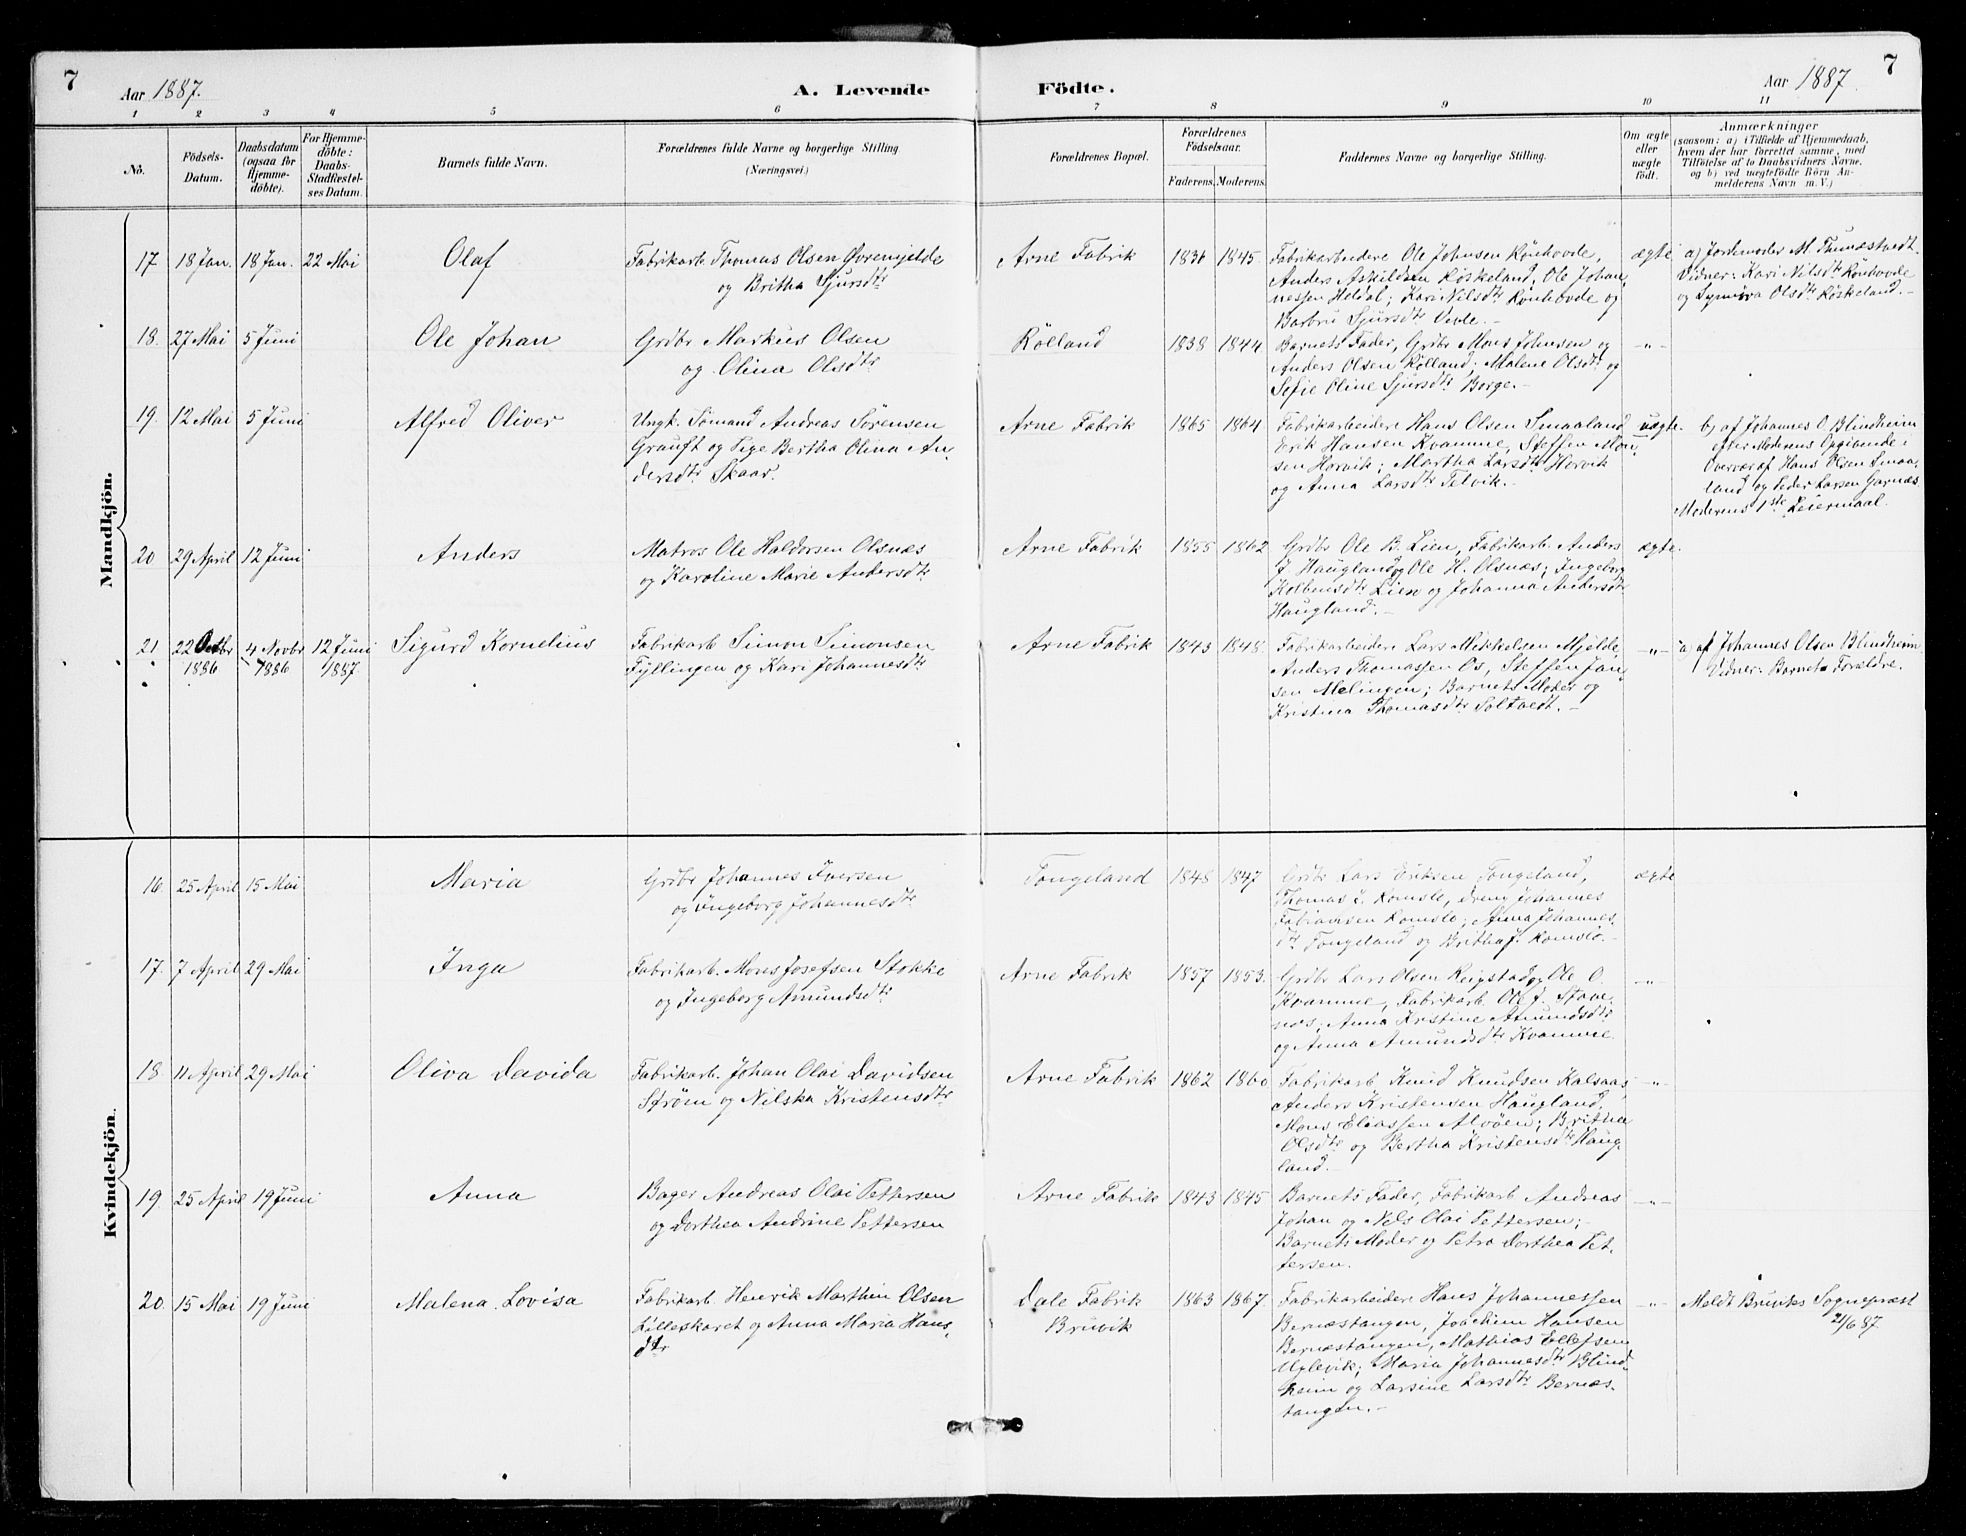 7
Aar 1887.
A. Levende
Födte.
Aar 1887.
7
1 2 3 4 5 6 7 8 9 10 11
No.
Födsels-
Datum.
Daabsdatum
(ogsaa för
Hjemme-
döbte).
For Hjemme-
döbte:
Daabs-
Stadfæstel-
ses Datum.
Barnets fulde Navn.
Forældrenes fulde Navne og borgerlige Stilling
(Næringsvei.)
Forældrenes Bopæl.
Forældrenes
Födselsaar.
Faderens. Moderens.
Faddernes Navne og borgerlige Stilling.
Om ægte
eller
uægte
födt.
Anmærkninger
(saasom: a) i Tilfælde af Hjemmedaab,
hvem der har forrettet samme, med
Tilföielse af to Daabsvidners Navne.
og b) ved uægtefödte Börn An-
melderens Navn m. V.)
Mandkjön.
17. 18 Jan. 18 Jan. 22 Mai
Olaf
Fabrikarb. Thomas Olsen Övremjelde
og Britha Sjursdtr
Arne Fabrik
1836 1845
Fabrikarbeidere Ole Johnsen Rönhovde,
Anders Askildsen Röskeland, Ole Johan-
nessen Heldal; Kari Nilsdtr Rönhovde og
Barbru Sjursdtr Vevle. -
ægte
a) Jordemoder M. Thunæstvedt.
Vidner: Kari Nilsdtr Rönhovde
og Synnöva Olsdtr Röskeland. -
18. 27 Mai 5 Juni
Ole Johan
Grdbr Markus Olsen
og Olina Olsdtr
Rölland
1838 1844
Barnets Fader, Grdbr Mons Johnsen og
Anders Olsen Rölland; Malene Olsdtr og
Sofie Oline Sjursdtr Borge. -
-"-
19. 12 Mai 5 Juni
Alfred Oliver
Ungk. Sömand Andreas Sörensen
Grauft og Pige Bertha Olina An-
dersdtr Skaar.
Arne Fabrik
1865 1864
Fabrikarbeidere Hans Olsen Smaaland
Erik Hansen Kvamme, Steffen Mon-
sen Horvik; Martha Larsdtr Horvik
og Anna Larsdtr Telvik. -
uægte.
b) af Johannes O. Blindheim
efter Moderens Opgivende i
Overvær af Hans Olsen Smaa-
land og Peder Larsen Garnæs
Moderens 1ste Leiermaal.
20 29 April 12 Juni
Anders
Matros Ole Haldorsen Olsnæs
og Karoline Marie Andersdtr
Arne Fabrik
1855 1862
Grdbr Ole B. Lien, Fabrikarb. Anders
J. Haugland og Ole H. Olsnæs; Ingeborg
Kolbensdtr Lien og Johanna Andersdtr
Haugland. -
ægte.
21. 22 Octbr 4 Novbr 12 Juni
1886 1886 1887
Sigurd Kornelius
Fabrikarb Simon Simonsen
Fyllingen og Kari Johannesdtr
Arne Fabrik
1843 1848.
Fabrikarbeidere Lars Mikkelsen Mjelde,
Anders Thomassen Os, Steffen Jan-
sen Melingen; Barnets Moder og
Kristina Thomasdtr Soltvedt. -
-"-
a) af Johannes Olsen Blindheim
Vidner: Barnets Forældre.
Kvindekjön.
16. 25 April 15 Mai
Maria
Grdbr Johannes Iversen
og Ingeborg Johannesdtr
Tongeland
1848 1847
Grdbr Lars Eriksen Tongeland,
Thomas L. Romslo, dreng Johannes
Fabiansen Romslo; Anna Johannes-
dtr Tongeland og Britha J. Romslo. -
ægte
17. 7 April 29 Mai
Inga
Fabrikarb. Mons Josefsen Stokke
og Ingeborg Amundsdtr
Arne Fabrik
1857 1853.
Grdbr Lars Olsen Reigstad og Ole O.
Kvamme, Fabrikarb. Ole J. Stave-
næs; Anna Kristine Amundsdtr
og Anna Amundsdtr Kvamme.
-"-
18. 11 April 29 Mai
Oliva Davida
Fabrikarb. Johan Olai Davidsen
Ström og Nilska Kristensdtr
Arne Fabrik
1862 1860
Fabrikarb. Knud Knudsen Kalsaas,
Anders Kristensen Haugland,
Mons Eliassen Alvöen; Britha
Olsdtr og Bertha Kristensdtr Haug-
land. -
-"-
19. 25 April 19 Juni
Anna
Bager Andreas Olai Pettersen
og Dorthea Andrine Pettersen
Arne Fabrik
1843 1845
Barnets Fader, Fabrikarb. Andreas
Johan og Nels Olai Pettersen;
Barnets Moder og Petra Dorthea Pet-
tersen.
-"-
20. 15 Mai 19 Juni
Malena Lovisa
Fabrikarb. Henrik Marthin Olsen
Lilleskaret og Anna Maria Hans-
dtr
Dale Fabrik
Bruvik
1863 1867
Fabrikarbeidere Hans Johannessen
Bernæstangen, Joachim Hansen
Bernæstangen, Mathias Ellefsen
Uglevik; Maria Johannesdtr Blind-
heim og Larsine Larsdtr Bernæs-
tangen. -
-"-
Meldt Bruviks Sognepræst
21/6 87